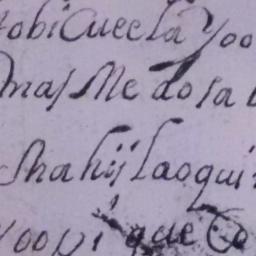 tobicueela yoo
mas Me do sa l
Shahij Laoqui
yoo pi que Co